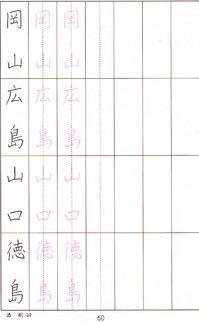 岡山 岡山 岡山
広島 広島 広島
山口 山口 山口
徳島 徳島 徳島
60